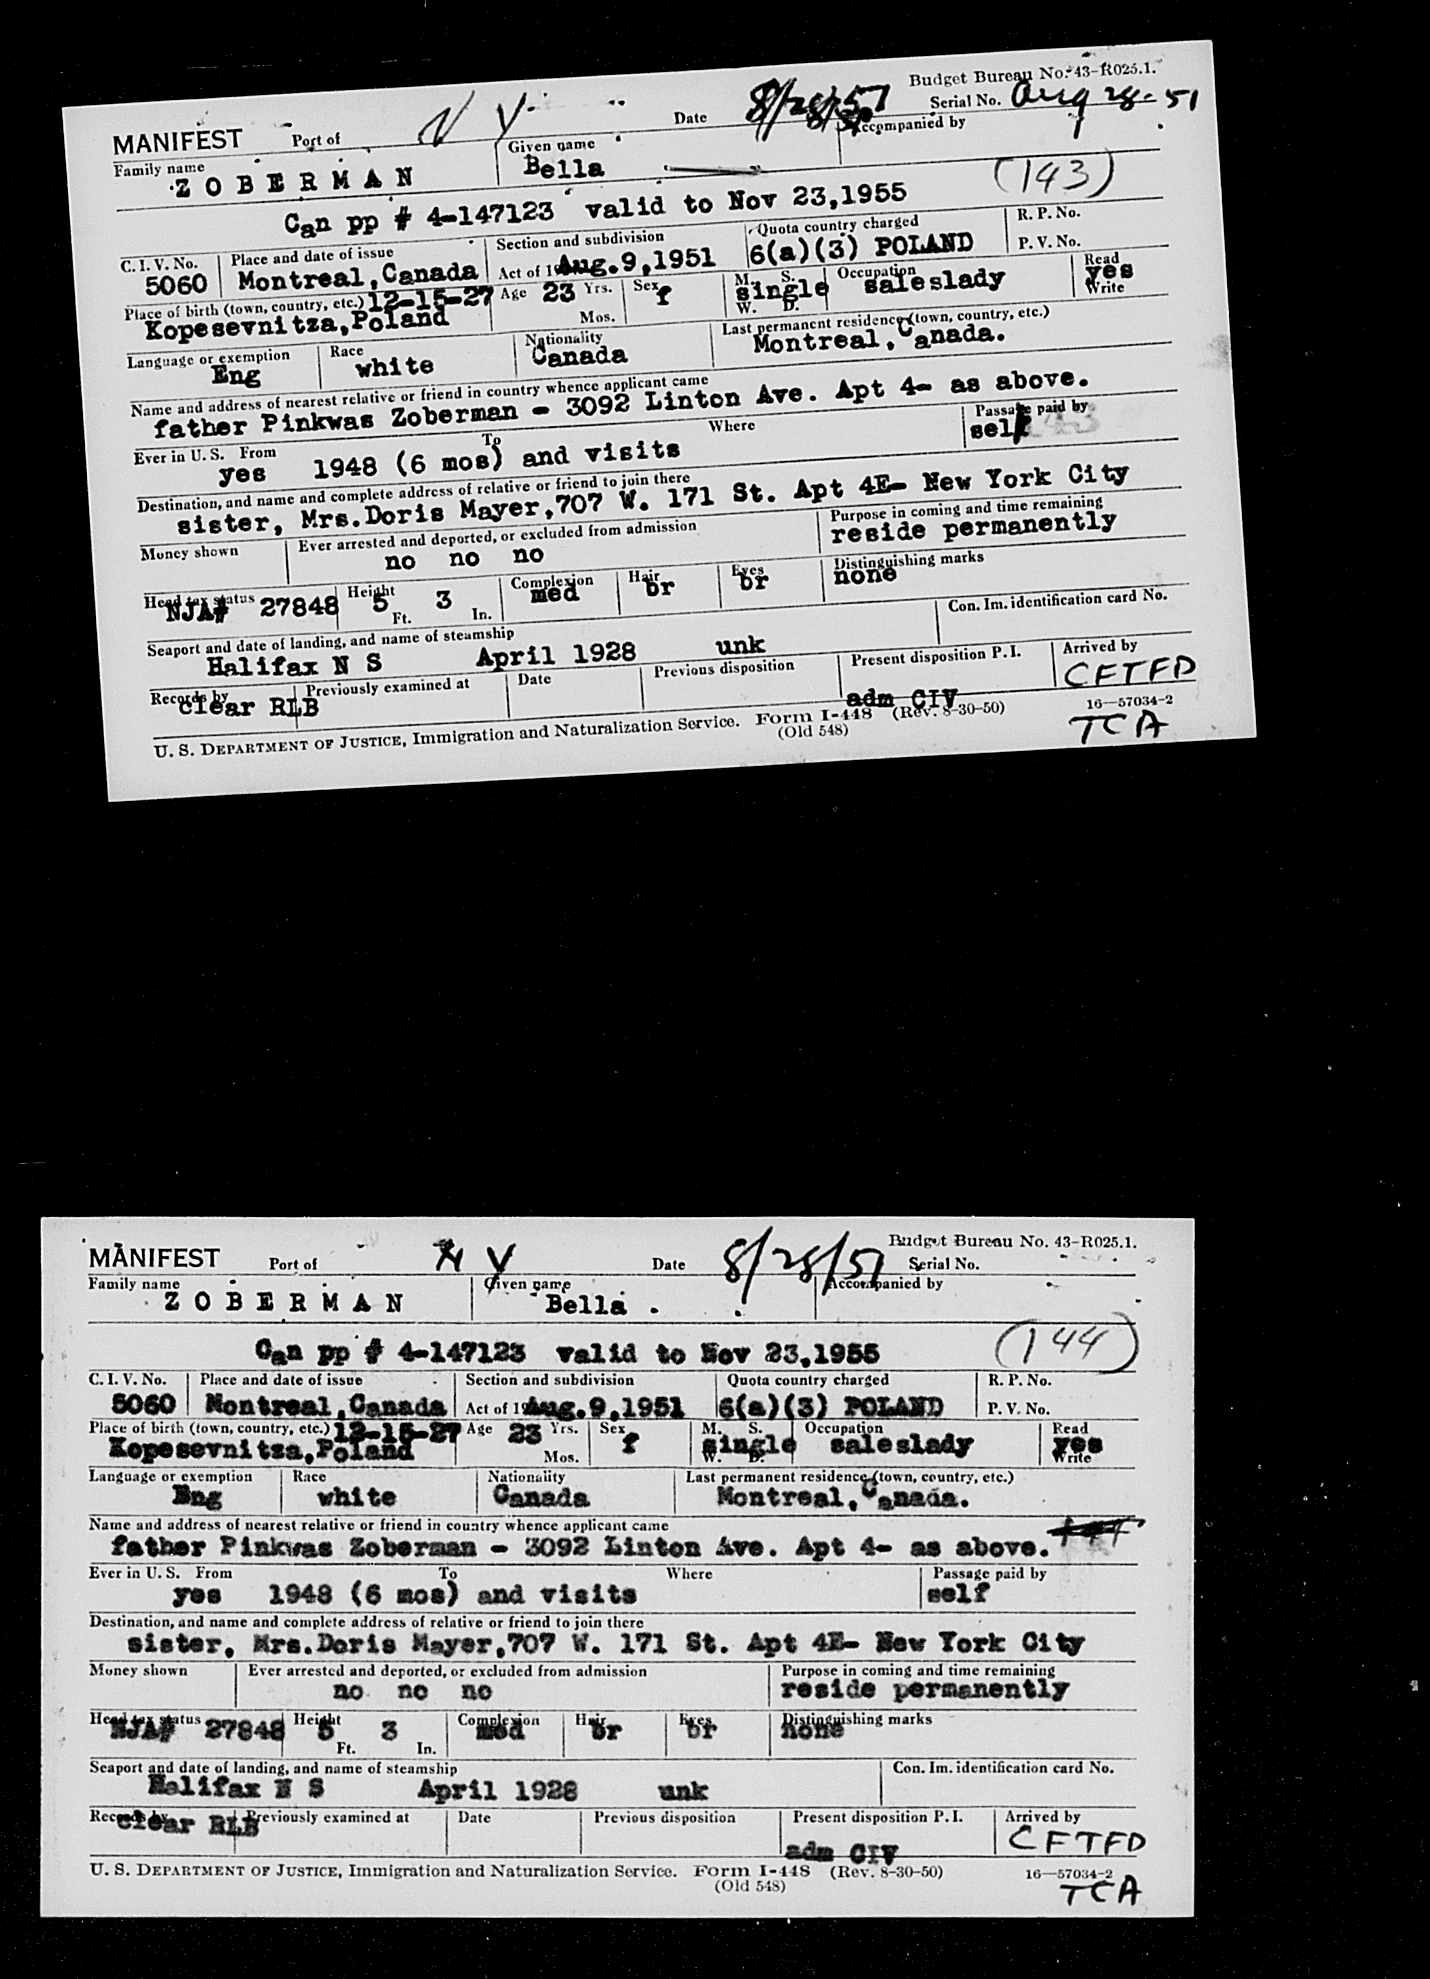 Budget Bureau No. 43-R025.1.
MANIFEST Port of N Y Date 8/28/51 Serial No. Aug 28-51
Family name ZOBERMAN Given name Bella Accompanied by
Can pp # 4-147123 valid to Nov 23,1955 (143)
C. I. V. No. Place and date of issue Section and subdivision Quota country charged R. P. No.
5060 Montreal,Canada Act of Aug.9,1951 6(a)(3) POLAND P. V. No.
Place of birth (town, country, etc.) 12-15-27 Age 23 Yrs. Sex M. S. Occupation Read
Kopesevnitza,Poland Mos. f single W. D. saleslady yes Write
Language or exemption Race Nationality Last permanent residence (town, country, etc.)
Eng white Canada Montreal,Canada.
Name and address of nearest relative or friend in country whence applicant came
father Pinkwas Zoberman - 3092 Linton Ave. Apt 4- as above.
Ever in U. S. From To Where Passage paid by
yes 1948 (6 mos) and visits self 143
Destination, and name and complete address of relative or friend to join there
sister, Mrs.Doris Mayer,707 W. 171 St. Apt 4E- New York City
Money shown Ever arrested and deported, or excluded from admission Purpose in coming and time remaining
no no no reside permanently
Head tax status Height Complexion Hair Eyes Distinguishing marks
NJA# 27848 5 Ft. 3 In. med br br none
Seaport and date of landing, and name of steamship Con. Im. identification card No.
Halifax N S April 1928 unk
Records by Previously examined at Date Previous disposition Present disposition P. I. Arrived by
clear RLB adm CIV CFTFD
U. S. DEPARTMENT OF JUSTICE, Immigration and Naturalization Service. Form I-448 (Rev. 8-30-50) 16—57034-2
(Old 548) TCA
Budget Bureau No. 43-R025.1.
MANIFEST Port of N Y Date 8/28/51 Serial No.
Family name ZOBERMAN Given name Bella Accompanied by
Can pp # 4-147123 valid to Nov 23,1955 (144)
C. I. V. No. Place and date of issue Section and subdivision Quota country charged R. P. No.
5060 Montreal,Canada Act of Aug.9,1951 6(a)(3) POLAND P. V. No.
Place of birth (town, country, etc.) 12-15-27 Age 23 Yrs. Sex M. S. Occupation Read
Kopesevnitza,Poland Mos. f single W. D. saleslady yes Write
Language or exemption Race Nationality Last permanent residence (town, country, etc.)
Eng white Canada Montreal,Canada.
Name and address of nearest relative or friend in country whence applicant came
father Pinkwas Zoberman - 3092 Linton Ave. Apt 4- as above.
Ever in U. S. From To Where Passage paid by
yes 1948 (6 mos) and visits self
Destination, and name and complete address of relative or friend to join there
sister, Mrs.Doris Mayer,707 W. 171 St. Apt 4E- New York City
Money shown Ever arrested and deported, or excluded from admission Purpose in coming and time remaining
no no no reside permanently
Head tax status Height Complexion Hair Eyes Distinguishing marks
NJA# 27848 5 Ft. 3 In. med br br none
Seaport and date of landing, and name of steamship Con. Im. identification card No.
Halifax N S April 1928 unk
Records by Previously examined at Date Previous disposition Present disposition P. I. Arrived by
clear RLB adm CIV CFTFD
U. S. DEPARTMENT OF JUSTICE, Immigration and Naturalization Service. Form I-448 (Rev. 8-30-50) 16—57034-2
(Old 548) TCA